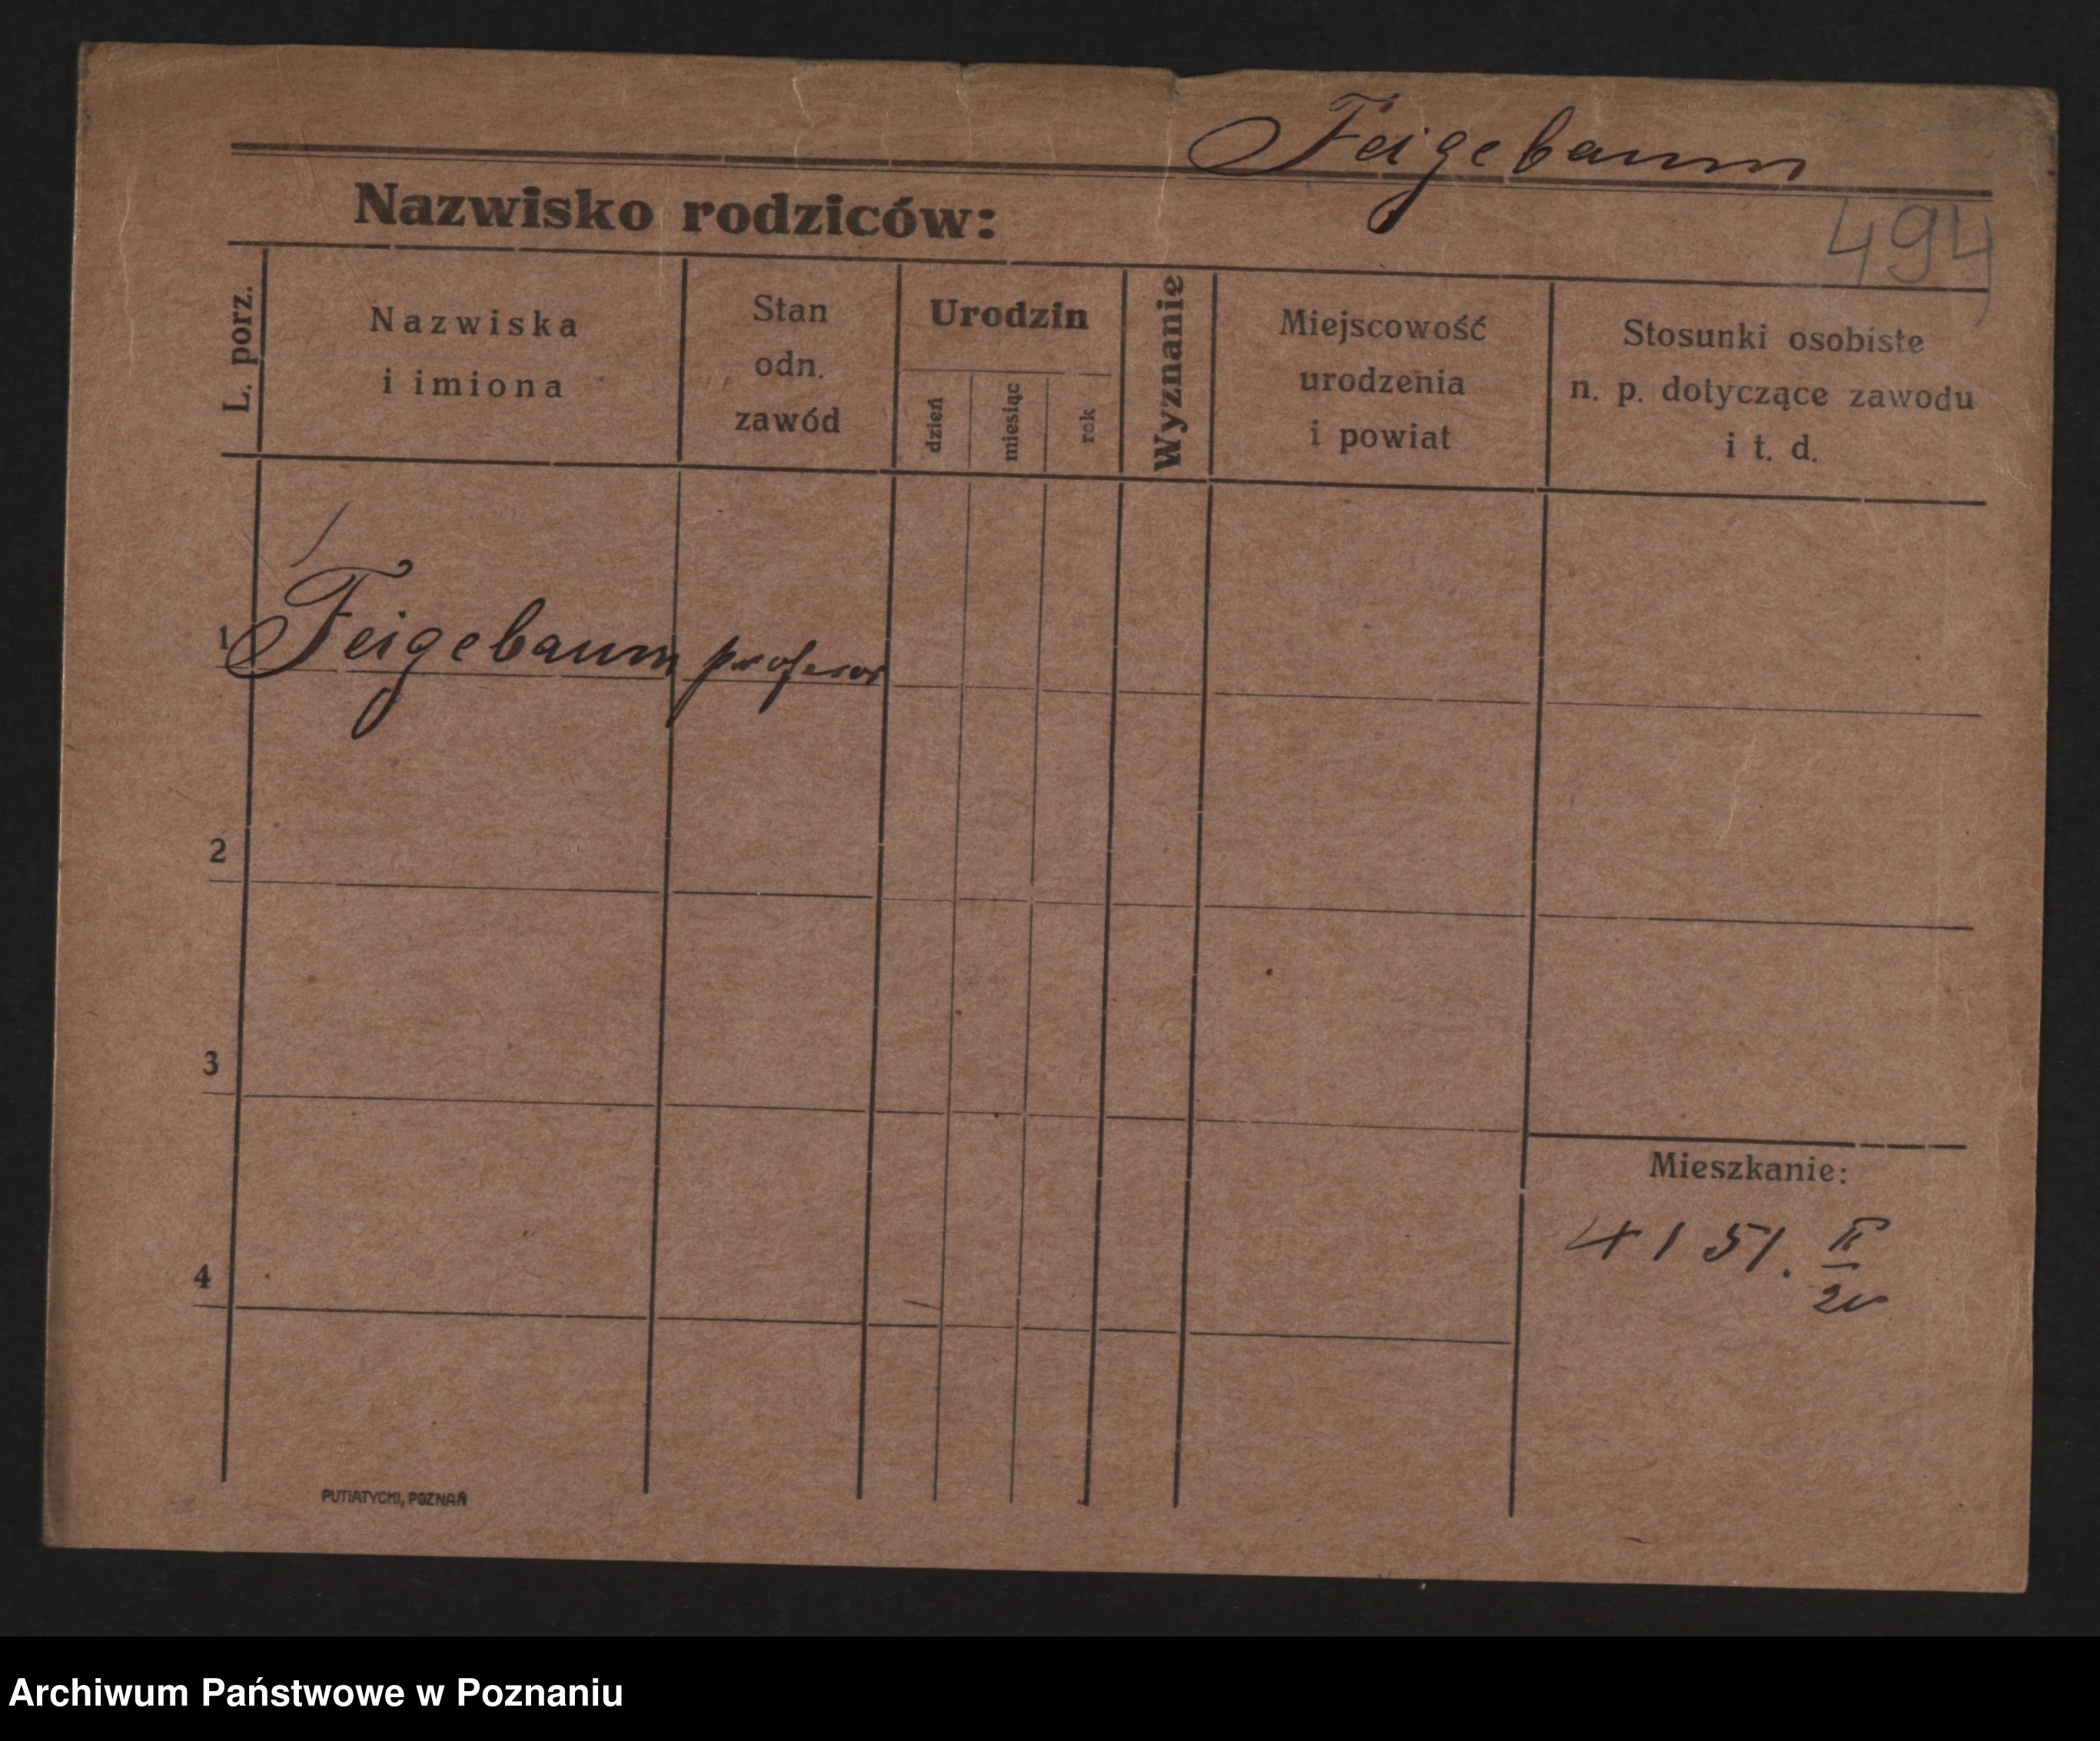 Feigebaum
Nazwisko rodziców:
494
L. porz.
Nazwiska
i imiona
Stan
odn.
zawód
Urodzin
dzień
miesiąc
rok
Wyznanie
Miejscowość
urodzenia
i powiat
Stosunki osobiste
n. p. dotyczące zawodu
i t. d.
1
Feigebaum profesor
2
3
Mieszkanie:
4151. II
4
PUTIATYCKI, POZNAŃ
Archiwum Państwowe w Poznaniu